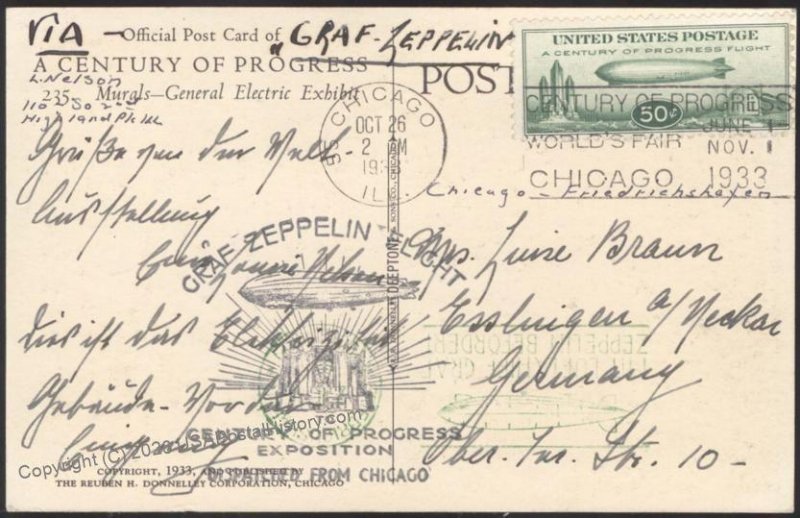 VIA – Official Post Card of "GRAF-ZEPPELIN"
A CENTURY OF PROGRESS
L. Nelson
235. Murals—General Electric Exhibit
Highland Pk Ill
POST
UNITED STATES POSTAGE
A CENTURY OF PROGRESS FLIGHT
50¢
CHICAGO
OCT 26
2 M
193
ILL.
CENTURY OF PROGRESS
WORLD'S FAIR
JUNE 1
NOV. 1
CHICAGO 1933
Chicago – Friedrichshafen
Grüße von der Welt-
Ausstellung
GRAF ZEPPELIN FLIGHT
Dies ist das
Gebäude – Vor
CENTURY OF PROGRESS
EXPOSITION
DISPATCHED FROM CHICAGO
Mrs. Luise Braun
Esslingen a/Neckar
Germany
Ober. Str. 10 –
ZEPPELIN BEFÖRDERT
R.H. DONNELLEY
DEEPTONE
Copyright (C) 2026 USAPostalHistory.com
COPYRIGHT, 1933, AND PUBLISHED BY
THE REUBEN H. DONNELLEY CORPORATION, CHICAGO